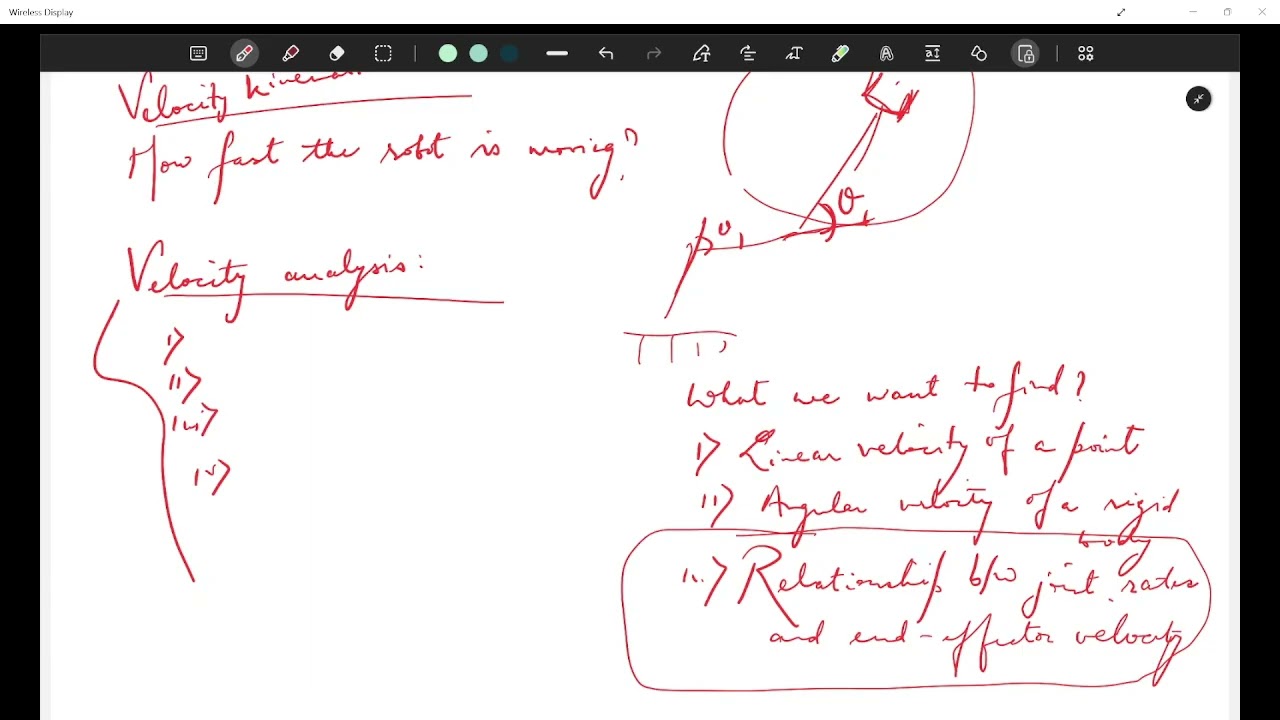 Wireless Display
Velocity kinema
How fast the robot is moving?
Velocity analysis:
i)
ii)
iii)
iv)
θ1
θ1
What we want to find?
i) Linear velocity of a point
ii) Angular velocity of a rigid
body
iii) Relationship b/w joint rates
and end-effector velocity